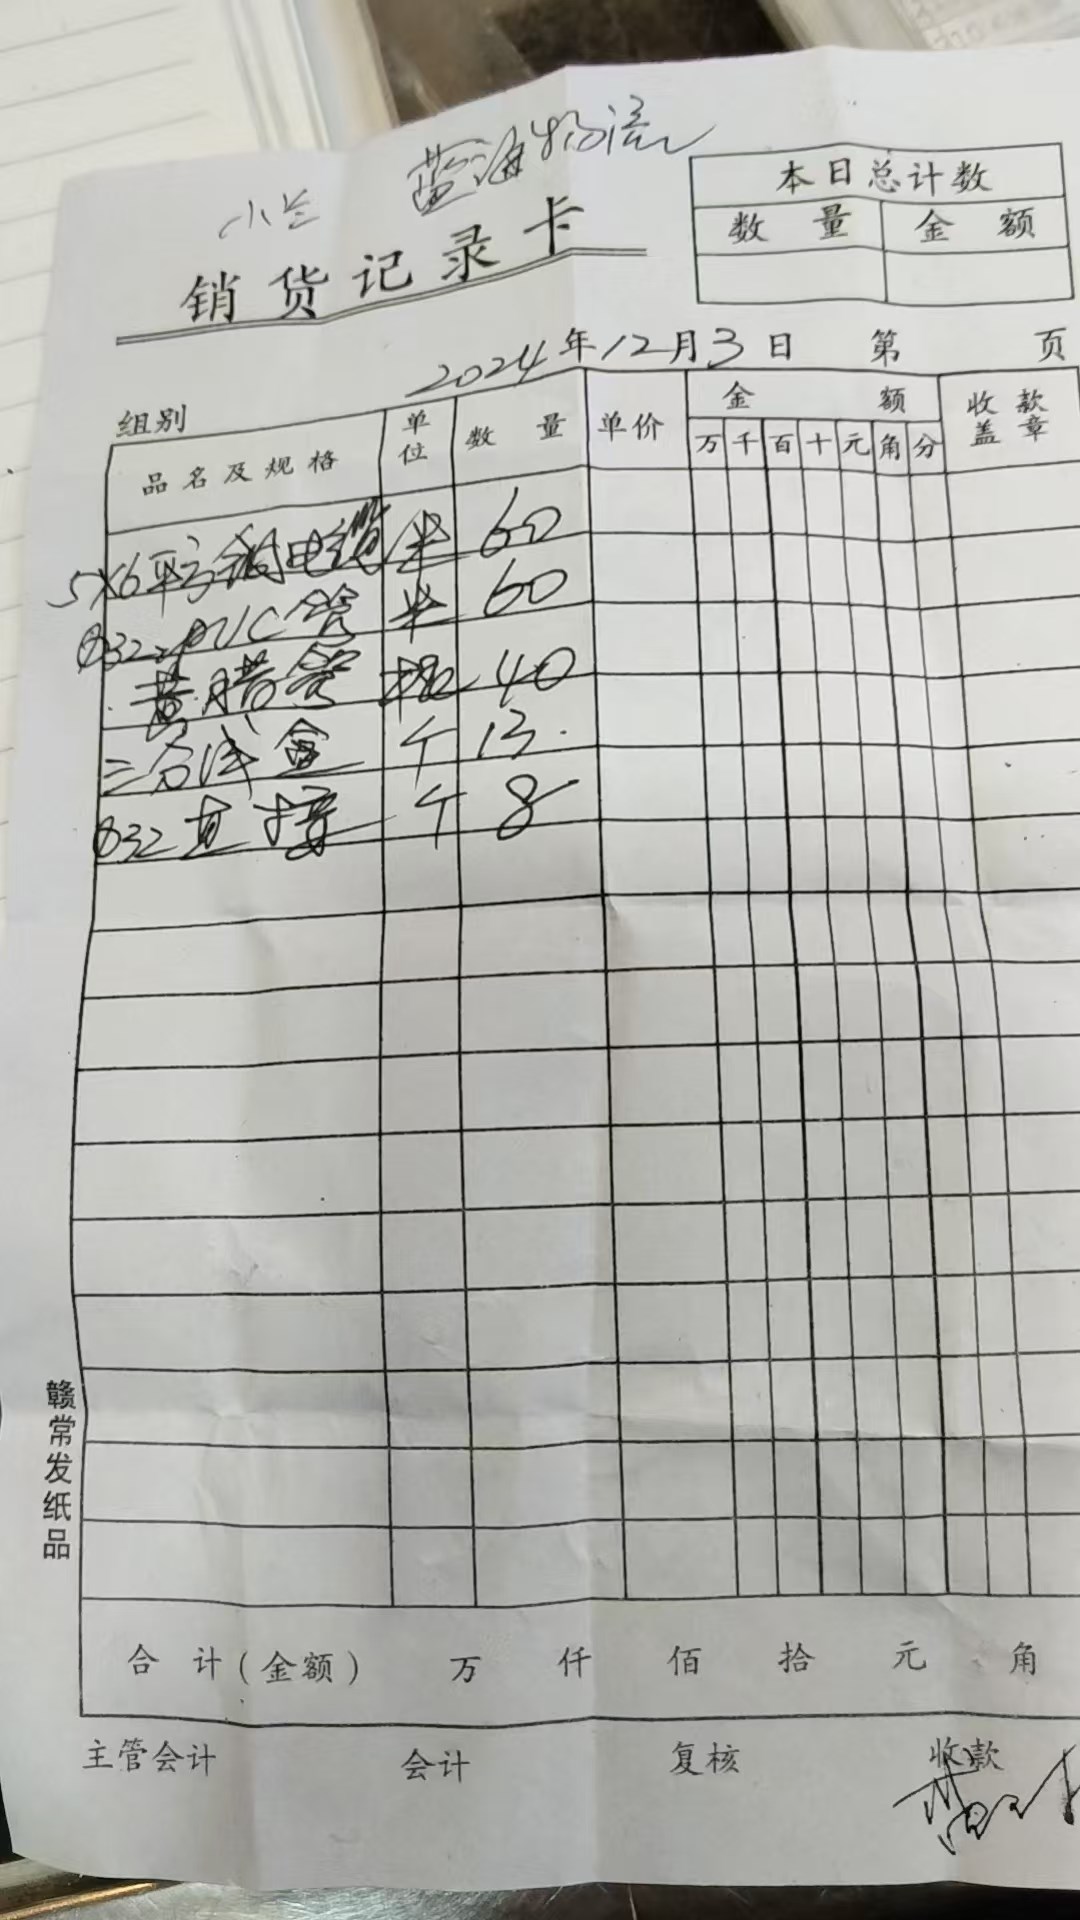 小兰 蓝海物流
本日总计数
数量 金额
销货记录卡
2024年12月3日 第 页
组别
品名及规格 单位 数量 单价 金额 收款盖章
万 千 百 十 元 角 分
5X6平方铜电缆 米 60
Φ32PVC管 米 60
黄腊管 根 40
三分线盒 个 13.
Φ32直接 个 8
赣常发纸品
合计(金额) 万 仟 佰 拾 元 角
主管会计 会计 复核 收款